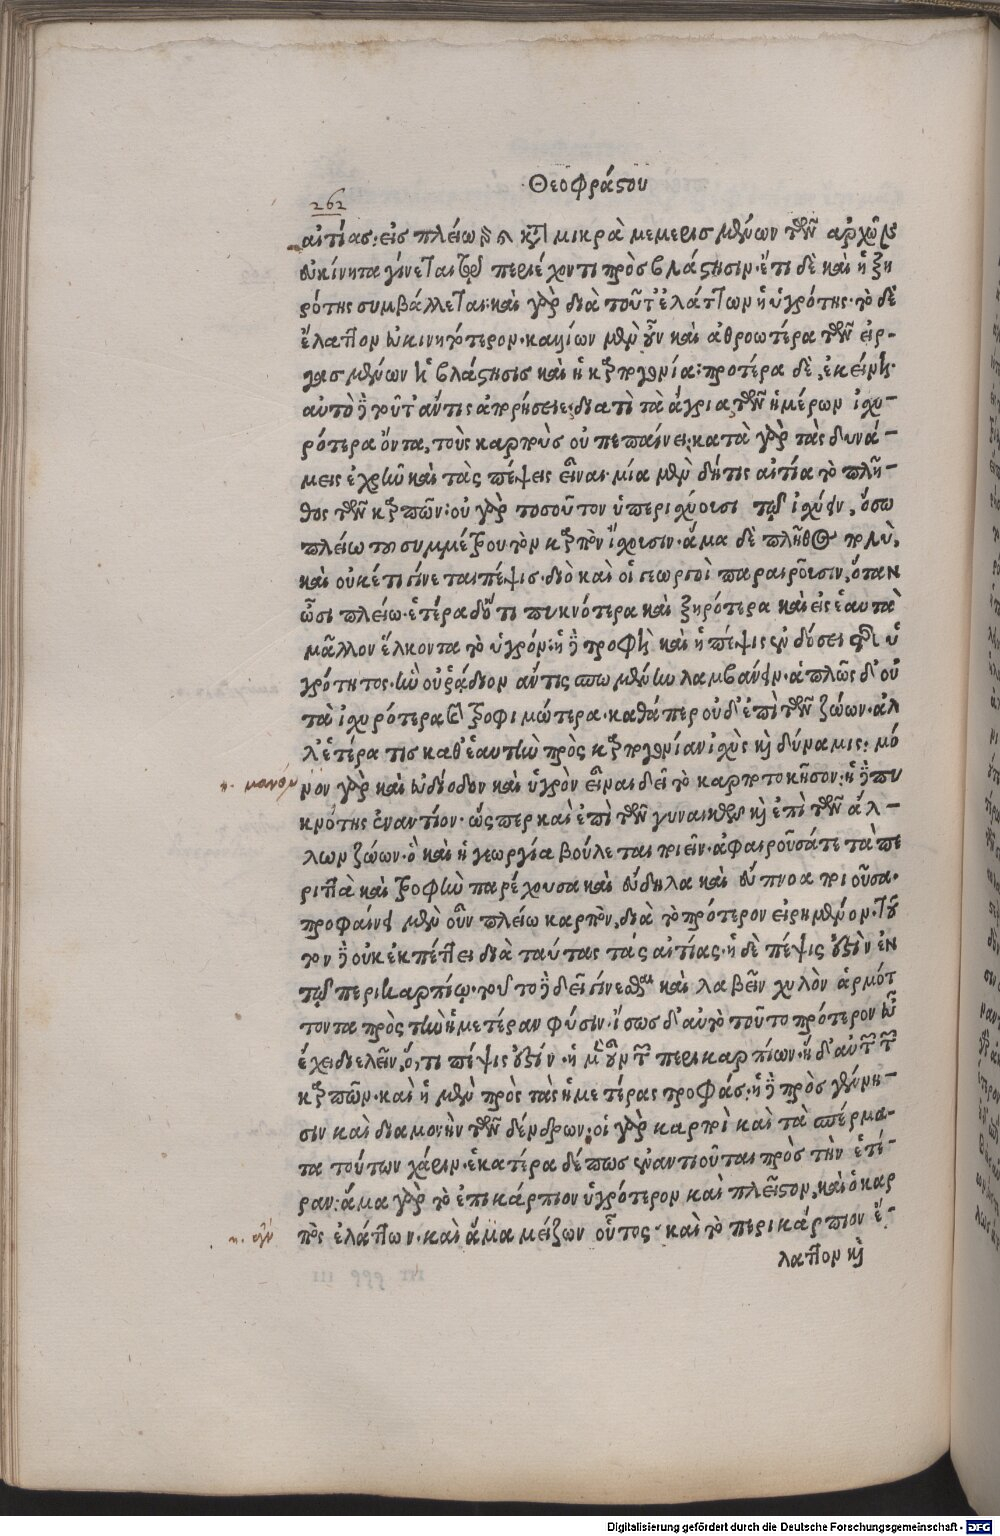 Θεοφράστου
262
αἰτίας: εἰς πλείω δὲ καὶ μικρὰ μεμερισμένων τῶν ἀρχῶν
εὐκίνητα γίνεται τῷ περιέχοντι πρὸς βλάστησιν. ἔτι δὲ καὶ ἡ ξη
ρότης συμβάλλεται. καὶ γὰρ διὰ τοῦτ' ἐλάττων ἡ ὑγρότης. τὸ δὲ
ἔλαττον εὐκινητότερον. καὶ μὲν οὖν καὶ ἀθροωτέρα τῶν εἰρ-
γασμένων ἡ βλάστησις καὶ ἡ καρπογονία: προτέρα δὲ ἐκείνη.
αὐτὸ δὲ τοῦτ' ἄν τις ἀπορήσειε, διατὶ τὰ ἄγρια τῶν ἡμέρων ἰσχυ-
ρότερα ὄντα, τοὺς καρποὺς οὐ πεπαίνει: κατὰ γὰρ τὰς δυνά-
μεις ἐχρῆν καὶ τὰς πέψεις εἶναι. μία μὲν δή τις αἰτία τὸ πλῆ-
θος τῶν καρπῶν: οὐ γὰρ τοσοῦτον ὑπερισχύουσι τῷ ἰσχύειν, ὅσω
πλείω τοσυμμέτρου τὸν καρπὸν ἴσχουσιν. ἅμα δὲ πλῆθος πολὺ,
καὶ οὐκέτι γίνεται πέψις. διὸ καὶ οἱ γεωργοὶ παραιροῦσιν, ὅταν
ὦσι πλείω. ἑτέρα δ' ὅτι πυκνότερα καὶ ξηρότερα καὶ εἰς ἑαυτὰ
μᾶλλον ἕλκοντα τὸ ὑγρόν: ἡ δὲ τροφὴ καὶ ἡ πέψις ἐνδύσει τῆς ὑ
γρότητος. ἣν οὐ ῥᾴδιον ἄν τις πω μὲν ἣν λαμβάνειν. ἁπλῶς δ' οὐ
τὰ ἰσχυρότερα καὶ τροφιμώτερα. καθάπερ οὐδ' ἐπὶ τῶν ζώων. ἀλ
λ' ἑτέρα τις καθ' ἑαυτὴν πρὸς καρπογονίαν ἰσχὺς καὶ δύναμις: μό
νον γὰρ καὶ εὐδίοδον καὶ ὑγρὸν εἶναι δεῖ τὸ καρποτοκῆσον: ἡ δὲ πυ
η. μανόν
κνότης ἐναντίον. ὥσπερ καὶ ἐπὶ τῶν γυναικῶν καὶ ἐπὶ τῶν ἄλ-
λων ζώων. ὃ καὶ ἡ γεωργία βούλεται ποιεῖν. ἀφαιροῦσά τε τὰ πε
ριττὰ καὶ τροφὴν παρέχουσα καὶ εὔδηλα καὶ εὔπνοα ποιοῦσα.
προφαίνει μὲν οὖν πλείω καρπὸν, διὰ τὸ πρότερον εἰρημένον. τοῦ
τον δὲ οὐκ ἐκπέττει διὰ ταύτας τὰς αἰτίας. ἡ δὲ πέψις ἐστὶν ἐν
τῷ περικαρπίῳ. τοῦτο δὲ δεῖ γίνεσθαι καὶ λαβεῖν χυλὸν ἁρμότ
τοντα πρὸς τὴν ἡμετέραν φύσιν. ἴσως δ' αὐτὸ τοῦτο πρότερον εὖ
ἔχει διελεῖν, ὅ,τι πέψις ἐστίν. ἡ μὲν οὖν τῶν περικαρπίων. ἡ δ' αὐτῶν τῶν
καρπῶν. καὶ ἡ μὲν πρὸς τὰς ἡμετέρας τροφάς. ἡ δὲ πρὸς γέννη-
σιν καὶ διαμονὴν τῶν δένδρων. οἱ γὰρ καρποὶ καὶ τὰ σπέρμα-
τα τούτων χάριν. ἑκατέρα δέ πως ἐναντιοῦται πρὸς τὴν ἑτέ-
ραν: ἅμα γὰρ τὸ ἐπικάρπιον ὑγρότερον καὶ πλεῖστον, καὶ ὁ καρ
πὸς ἐλάττων. καὶ ἅμα μείζων οὗτος. καὶ τὸ περικάρπιον ἔ-
λαττον καὶ